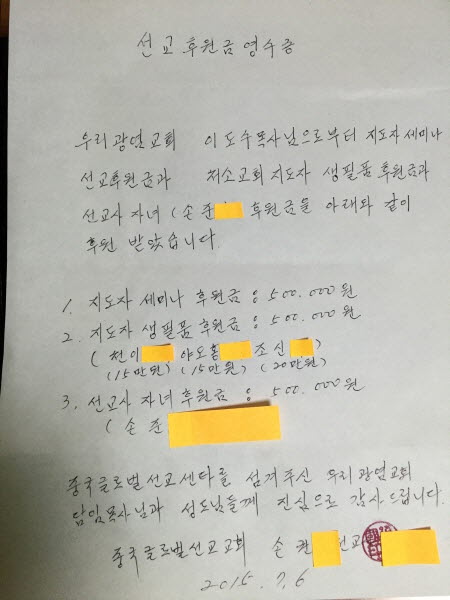 선교 후원금 영수증
우리 광염교회 이도수목사님으로부터 지도자 세미나
선교후원금과 처소교회 지도자 생필품 후원금과
선교사 자녀 (손준 후원금을 아래와 같이
후원 받았습니다.
1. 지도자 세미나 후원금 : 500.000원
2. 지도자 생필품 후원금 : 500.000원
(천이 야도홍 조신 )
(15만원) (15만원) (20만원)
3. 선교사 자녀 후원금 : 500.000원
(손준
중국글로벌선교센타를 섬겨주신 우리광염교회
담임목사님과 성도님들께 진심으로 감사드립니다.
중국글로벌선교교회 손권 선교
2015. 7. 6